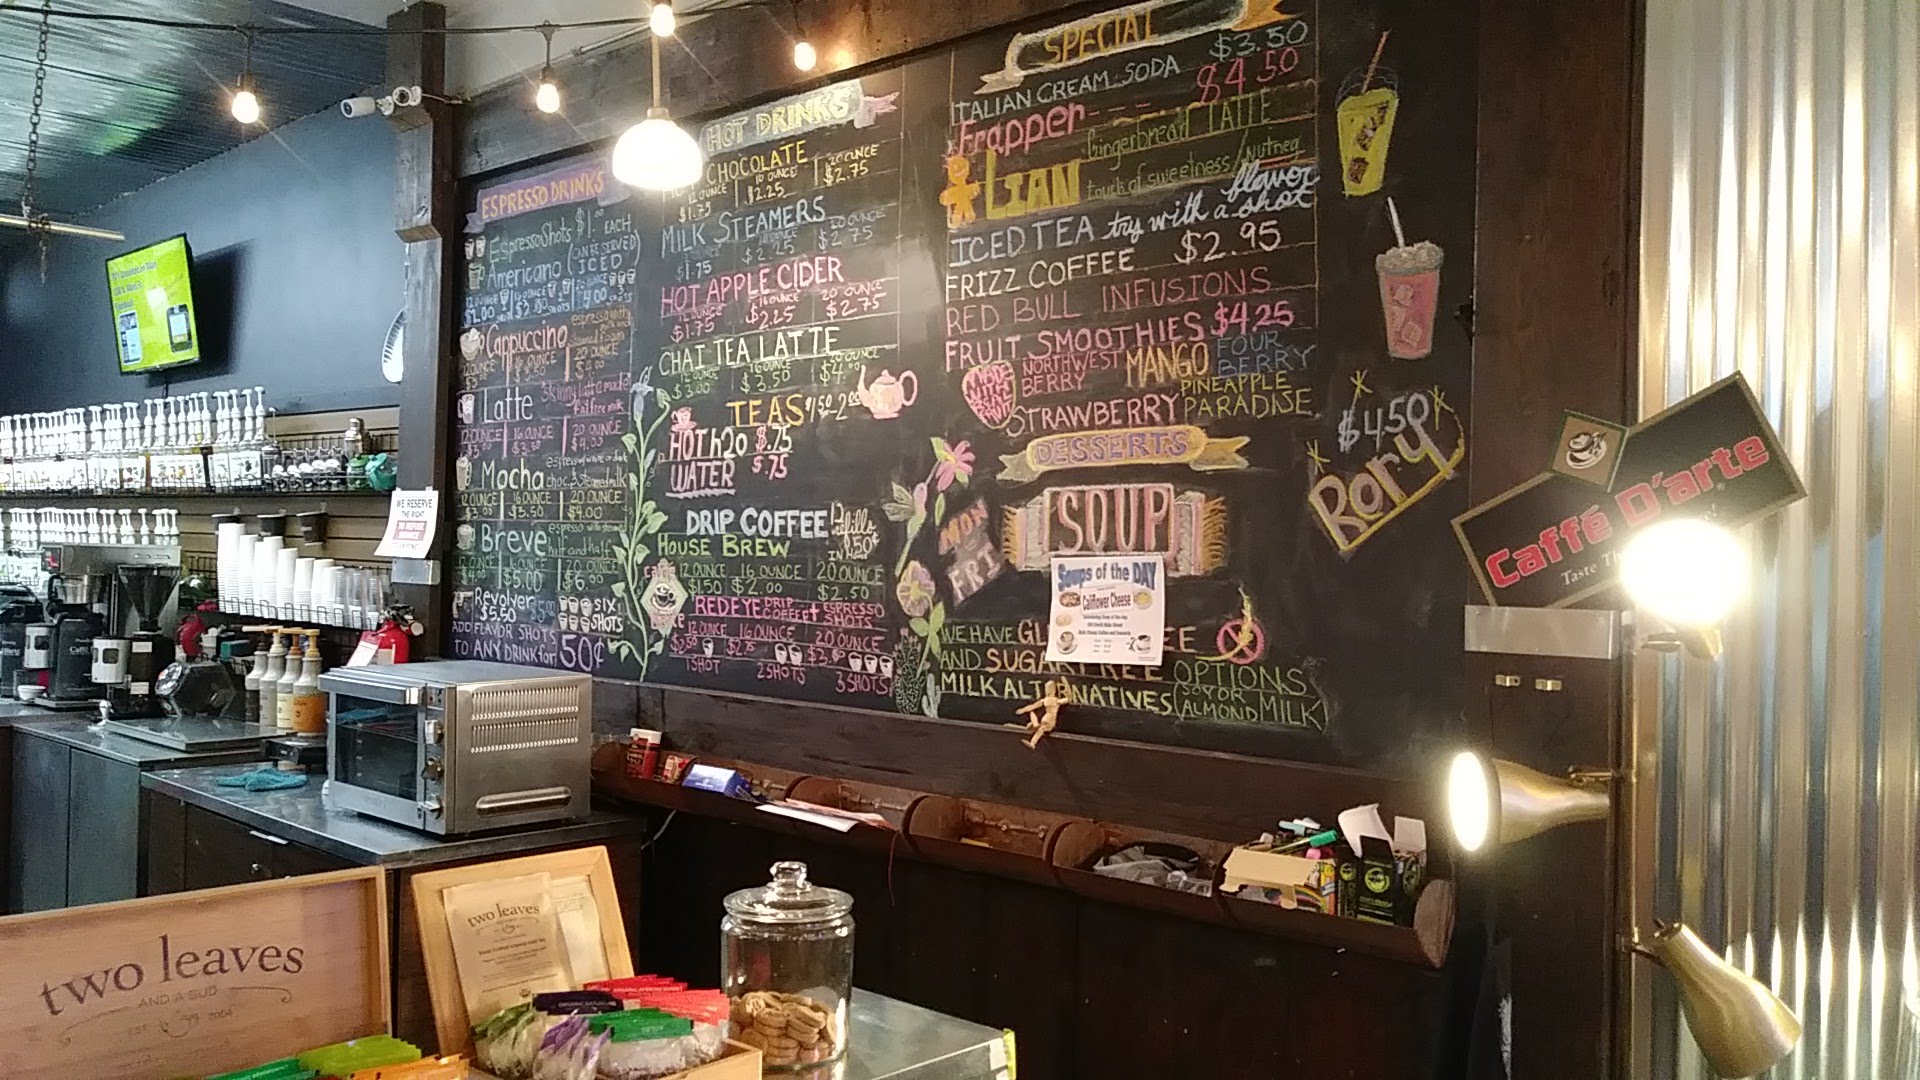 ESPRESSO DRINKS
Espresso Shots $1.00 EACH
Americano (CAN BE SERVED
ICED)
12 OUNCE 16 OUNCE 20 OUNCE
$2.00
4.00
Cappuccino espresso with
steamed foam
12 OUNCE 16 OUNCE 20 OUNCE
Latte skinny latte made
fat free milk
12 OUNCE 16 OUNCE 20 OUNCE
$3.50 $4.00
Mocha
choc & steamed milk
12 OUNCE 16 OUNCE 20 OUNCE
$3.00 $3.50 $4.00
Breve espresso with steamed
half and half
12 OUNCE 16 OUNCE 20 OUNCE
$4.00 $5.00 $6.00
Revolver SIX
$5.50 SHOTS
ADD FLAVOR SHOTS
TO ANY DRINK for 50¢
HOT DRINKS
HOT CHOCOLATE
12 OUNCE 16 OUNCE 20 OUNCE
$1.75 $2.25 $2.75
MILK STEAMERS
16 OUNCE 20 OUNCE
$1.75 $2.25 $2.75
HOT APPLE CIDER
12 OUNCE 16 OUNCE 20 OUNCE
$1.75 $2.25 $2.75
CHAI TEA LATTE
12 OUNCE 16 OUNCE 20 OUNCE
$3.00 $3.50 $4.00
TEAS $1.50-2.00
HOT h2o $.75
WATER $.75
DRIP COFFEE Refills
HOUSE BREW $.50¢
IN House
12 OUNCE 16 OUNCE 20 OUNCE
$1.50 $2.00 $2.50
REDEYE DRIP COFFEE + ESPRESSO SHOTS
12 OUNCE 16 OUNCE 20 OUNCE
$2.50 $2.75
1 SHOT 2 SHOTS 3 SHOTS
SPECIAL
ITALIAN CREAM SODA $3.50
Frapper--- $4.50
LIAN Gingerbread LATTE
touch of sweetness/nutmeg
ICED TEA try with a flavor shot
FRIZZ COFFEE $2.95
RED BULL INFUSIONS
FRUIT SMOOTHIES $4.25
MADE WITH REAL FRUIT
NORTHWEST BERRY MANGO FOUR BERRY
STRAWBERRY PINEAPPLE PARADISE
DESSERTS
MON - FRI
SOUP
Soups of the DAY
Califlower Cheese
WE HAVE
AND SUGAR FREE OPTIONS
MILK ALTERNATIVES (SOY OR
ALMOND MILK)
$4.50
Rory
Caffé D'arte
Taste
WE RESERVE
THE RIGHT
TO REFUSE
SERVICE
two leaves
AND A BUD
EST 2004
two leaves